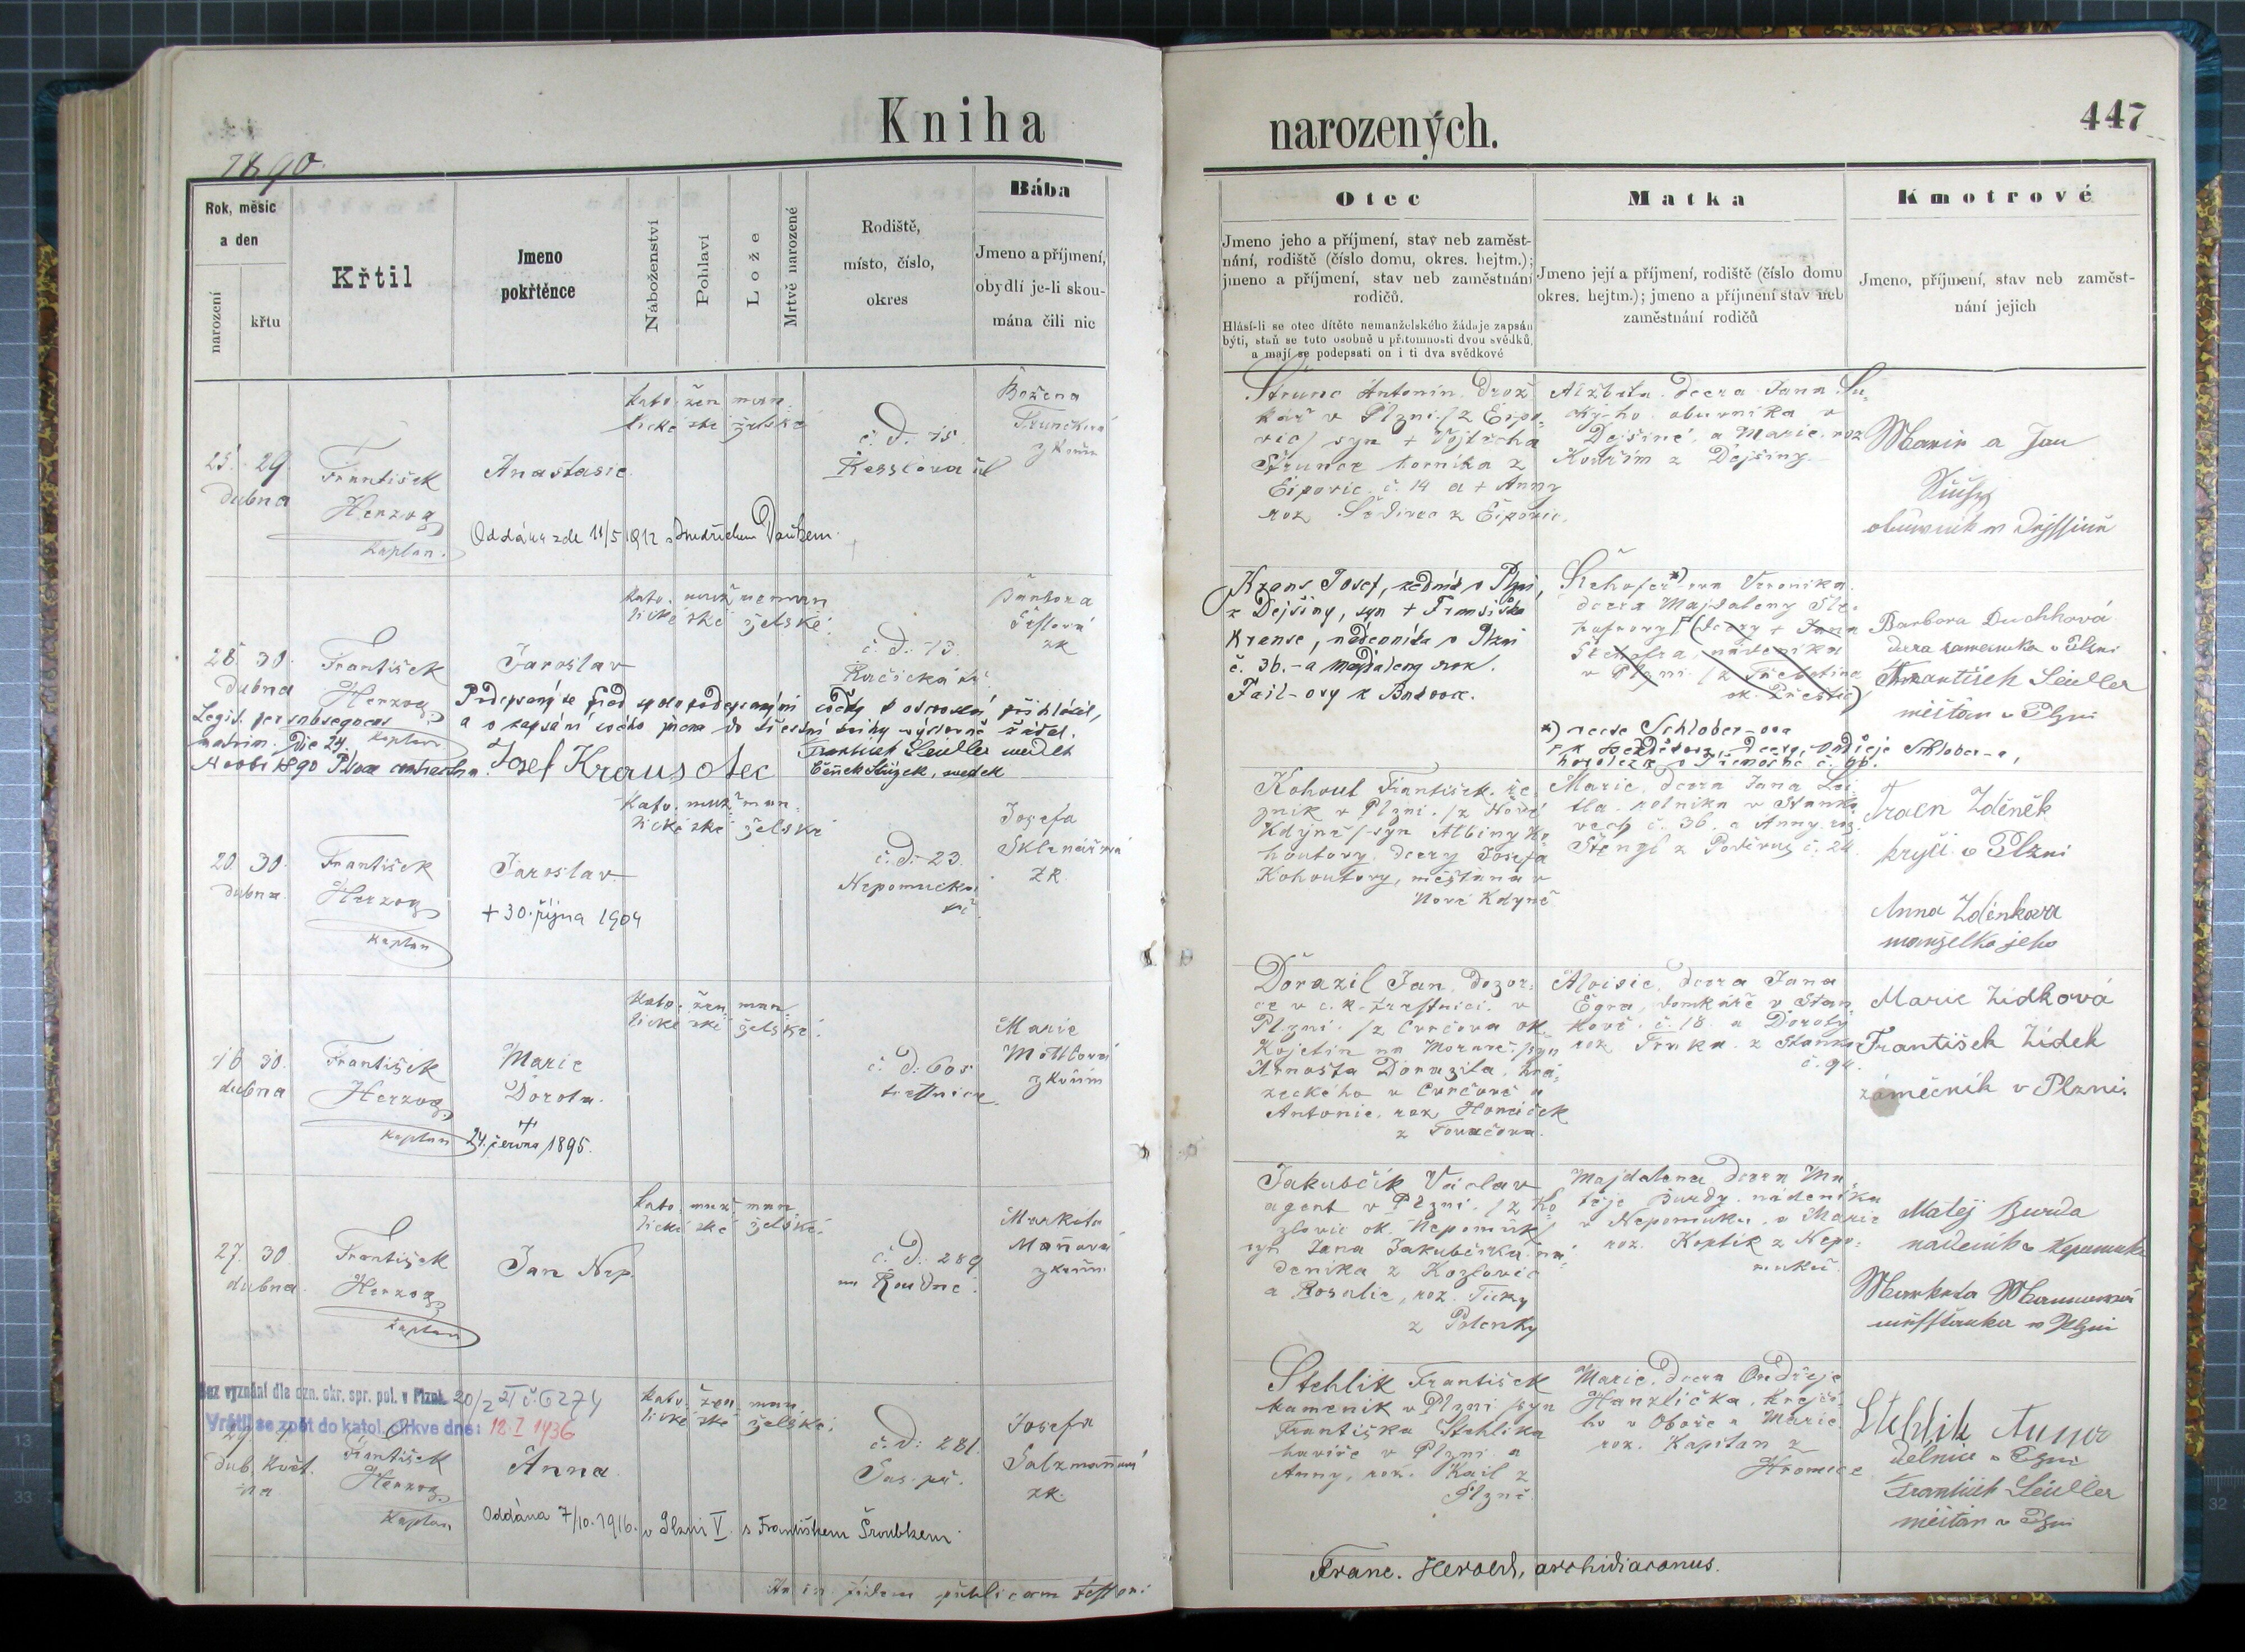 Kniha
narozených.
447
1890.
Rok, měsíc
a den
narození
křtu
Křtil
Jmeno
pokřtěnce
Náboženství
Pohlaví
Lože
Mrtvě narozené
Rodiště,
místo, číslo,
okres
Bába
Jmeno a příjmení,
obydlí je-li skou-
mána čili nic
Otec
Jmeno jeho a příjmení, stav neb zaměst-
nání, rodiště (číslo domu, okres. hejtm.);
jmeno a příjmení, stav neb zaměstnání
rodičů.
Hlásí-li se otec dítěte nemanželského žádaje zapsán
býti, staň se toto osobně u přítomnosti dvou svědků,
a mají se podepsati on i ti dva svědkové
Matka
Jmeno její a příjmení, rodiště (číslo domu
okres. hejtm.); jmeno a příjmení stav neb
zaměstnání rodičů
Kmotrové
Jmeno, příjmení, stav neb zaměst-
nání jejich
25. 29.
dubna
František
Herzog
kaplan.
Anastasie.
Oddána zde 11/5 1912 s Jindřichem
kato- žen man-
lické ské želské
č. D. 15.
Božena
Štrunc Antonín
kář v Plzni /z Eipo-
vic/ syn + Vojtěcha
Štrunce horníka z
Eipovic č. 14 a + Anny
roz. Šedivec z Eipovic.
Alžběta dcera Jana
obuvníka v
Dejšině a Marie roz.
z Dejšiny.
Marie a Jan
28. 30.
dubna
František
Herzog
kaplan
Jaroslav
kato- muž neman
lické ské želské
č. D. 13.
zk
Podepsaný se před spolupodepsanými svědky k otcovství přihlásil,
a o zapsání svého jména do křestní knihy výslovně žádal.
Josef Kraus otec
František Seidler svědek
svědek
Legit. per subsequens
matrim. die 24.
Kraus Josef, zedník v Plzni,
z Dejšiny, syn + Františka
Krause, nádeníka v Plzni
č. 36. a Majdaleny roz.
Veronika
dcera Majdaleny
(dcery + Jana
nádeníka
v Plzni
Barbora Duchková
dcera kameníka v Plzni
František Seidler
měšťan v Plzni
20. 30.
dubna.
František
Herzog
kaplan
Jaroslav
+ 30. října 1904
kato- muž man-
lické ské želské
č. D. 23.
Nepomucká
Josefa
Sklenářová
zk.
Kohout František, ře-
zník v Plzni. /z Nové
Kdyně/ syn Albiny Ko-
houtovy, dcery Josefa
Kohoutovy, měšťana v
Nové Kdyni
Marie, dcera Jana
rolníka v Stanko-
vech č. 36. a Anny roz.
Štengl z
Zděněk
krejčí v Plzni
Anna Zděnkova
manželka jeho
16 30.
dubna
František
Herzog
kaplan
Marie
Dorota.
+
24. června 1895.
kato- žen man-
lické ské želské.
č. D. 605
trestnice
Marie
Mottlová
zkoušn
Dorazil Jan, dozor-
ce v c. k. trestnici v
Plzni. /z Cvrčova ok.
Kojetín na Moravě/ syn
Arnošta Dorazila,
v Cvrčově a
Antonie, roz. Honcíček
z Tovačova.
Aloisie, dcera Jana
Egra, domkáře v Stan-
kově. č. 18. a Doroty
roz. z Stankova
č. 94.
Marie Zídková
František Zídek
zámečník v Plzni.
27. 30
dubna.
František
Herzog
kaplan
Jan Nep.
kato- muž man
lické ské želské.
č. D. 289
na Roudné.
Markéta
Maňová
zkoušn.
Jakubčík Václav
agent v Plzni. /z Ko-
zlovic ok. Nepomuk/
syn Jana Jakubčíka ná-
deníka z Kozlovic
a Rosalie, roz. Tichy
z Polenky
Majdalena, dcera Ma-
těje Burdy, nádeníka
v Nepomuku, a Marie
roz. Koptik z Nepo-
muku.
Matěj Burda
nádeník v Nepomuku
Markéta Mannová
měšťanka v Plzni
Bez vyznání dle ozn. okr. spr. pol. v Plzni 20/2 21 č. 6274
Vrátil se zpět do katol. církve dne: 12. I 1936
dub. květ.
na
František
Herzog
kaplan
Anna.
Oddána 7/10. 1916. v Plzni V. s Františkem Šroubkem.
kato- žen man
lické ské želské.
č. D. 281.
Sas. př.
Josefa
Salzmanová
zk.
Stehlík František
kameník v Plzni /syn
Františka Stehlíka
havíře v Plzni a
Anny, roz. Kail z
Plzně.
Marie, dcera Ondřeje
Hanzlíčka, krejčí-
ho v Oboře a Marie,
roz. Kapitan z
Hromice
Stehlík Anna
dělnice v Plzni
František Seidler
měšťan v Plzni
In fidem publicam testor:
Franc. Herold, archidiaconus.